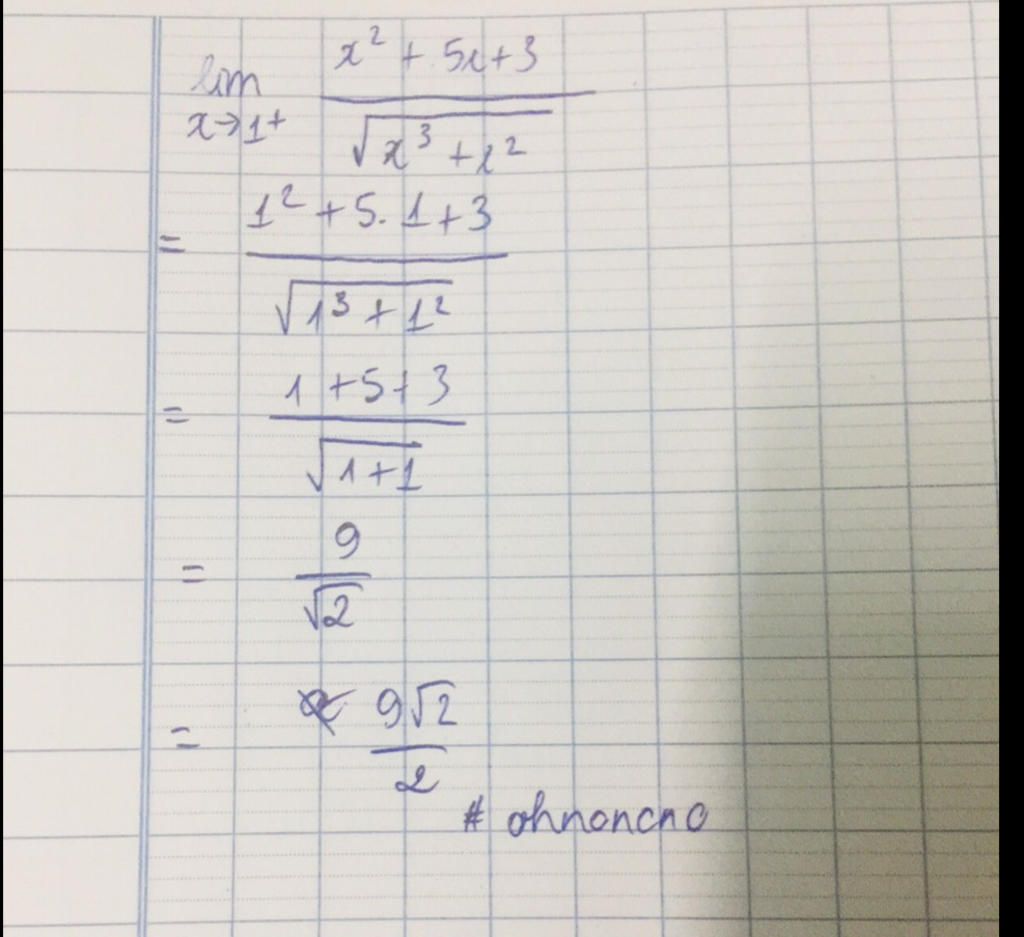 lim x→1+ (x² + 5x + 3) / √(x³ + x²)
= (1² + 5. 1 + 3) / √(1³ + 1²)
= (1 + 5 + 3) / √(1 + 1)
= 9 / √2
= 9√2 / 2
# ohnoncno